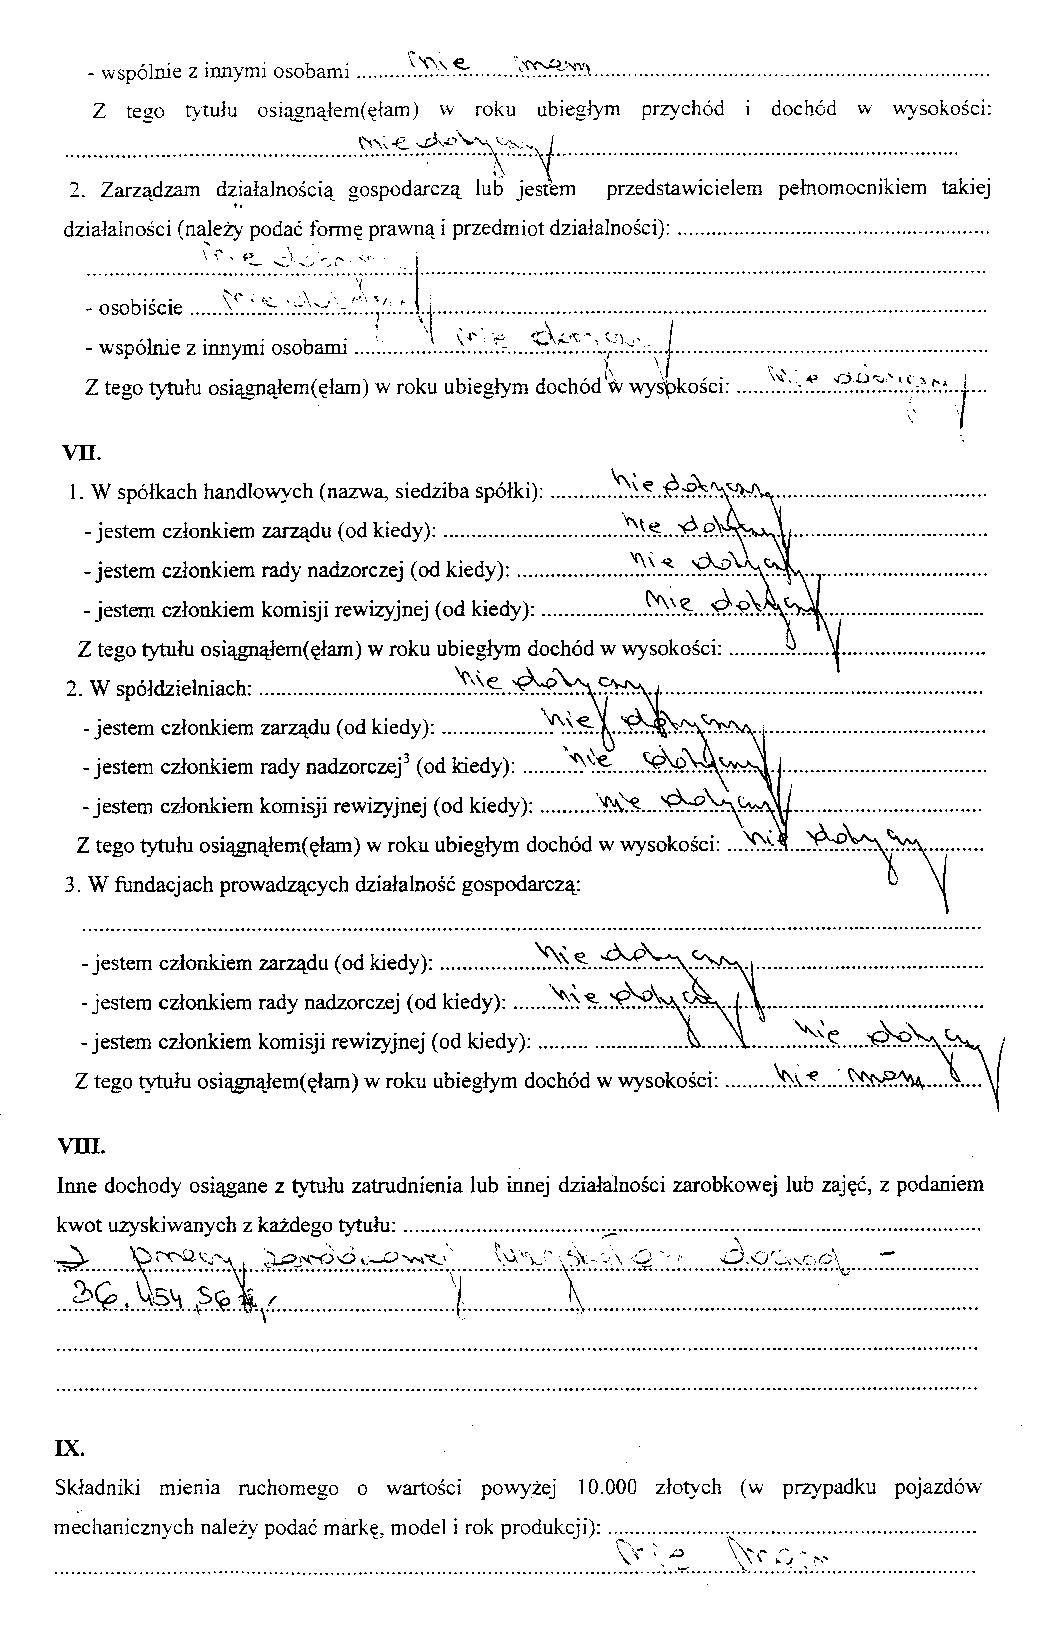 - wspólnie z innymi osobami ........ nie mam ........
Z tego tytułu osiągnąłem(ęłam) w roku ubiegłym przychód i dochód w wysokości:
........ nie dotyczy ........
2. Zarządzam działalnością gospodarczą lub jestem przedstawicielem pełnomocnikiem takiej
działalności (należy podać formę prawną i przedmiot działalności): ........
........ nie dotyczy ........
- osobiście ........ nie dotyczy ........
- wspólnie z innymi osobami ........ nie dotyczy ........
Z tego tytułu osiągnąłem(ęłam) w roku ubiegłym dochód w wysokości: ........ nie dotyczy ........
VII.
1. W spółkach handlowych (nazwa, siedziba spółki): ........ nie dotyczy ........
- jestem członkiem zarządu (od kiedy): ........ nie dotyczy ........
- jestem członkiem rady nadzorczej (od kiedy): ........ nie dotyczy ........
- jestem członkiem komisji rewizyjnej (od kiedy): ........ nie dotyczy ........
Z tego tytułu osiągnąłem(ęłam) w roku ubiegłym dochód w wysokości: ........
2. W spółdzielniach: ........ nie dotyczy ........
- jestem członkiem zarządu (od kiedy): ........ nie dotyczy ........
- jestem członkiem rady nadzorczej³ (od kiedy): ........ nie dotyczy ........
- jestem członkiem komisji rewizyjnej (od kiedy): ........ nie dotyczy ........
Z tego tytułu osiągnąłem(ęłam) w roku ubiegłym dochód w wysokości: ........ nie dotyczy ........
3. W fundacjach prowadzących działalność gospodarczą:
........
- jestem członkiem zarządu (od kiedy): ........ nie dotyczy ........
- jestem członkiem rady nadzorczej (od kiedy): ........ nie dotyczy ........
- jestem członkiem komisji rewizyjnej (od kiedy): ........ nie dotyczy
Z tego tytułu osiągnąłem(ęłam) w roku ubiegłym dochód w wysokości: ........ nie mam ........
VIII.
Inne dochody osiągane z tytułu zatrudnienia lub innej działalności zarobkowej lub zajęć, z podaniem
kwot uzyskiwanych z każdego tytułu: ........
Z pracy zawodowej dochód -
36.454,56 zł,-
IX.
Składniki mienia ruchomego o wartości powyżej 10.000 złotych (w przypadku pojazdów
mechanicznych należy podać markę, model i rok produkcji): ........
........ nie mam ........